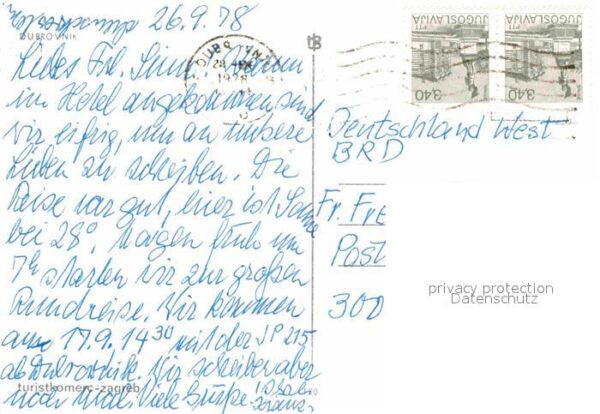 26.9.78
DUBROVNIK
Liebes Frl.
im Hotel angekommen sind
wir eifrig, um an unsere
Lieben zu schreiben. Die
Reise war gut, hier ist Sonne
bei 28°. Morgen früh um
7h starten wir zur großen
Rundreise. Wir kommen
am 17.9. 14 30 mit der JP 215
ab Dubrovnik. Wir schreiben aber
noch mal. Viele Grüße
turistkomerc-zagreb
JUGOSLAVIJA
PTT
3.40
JUGOSLAVIJA
3.40
1978
Deutschland West
BRD
Fr. Fre
Post
300
privacy protection
Datenschutz